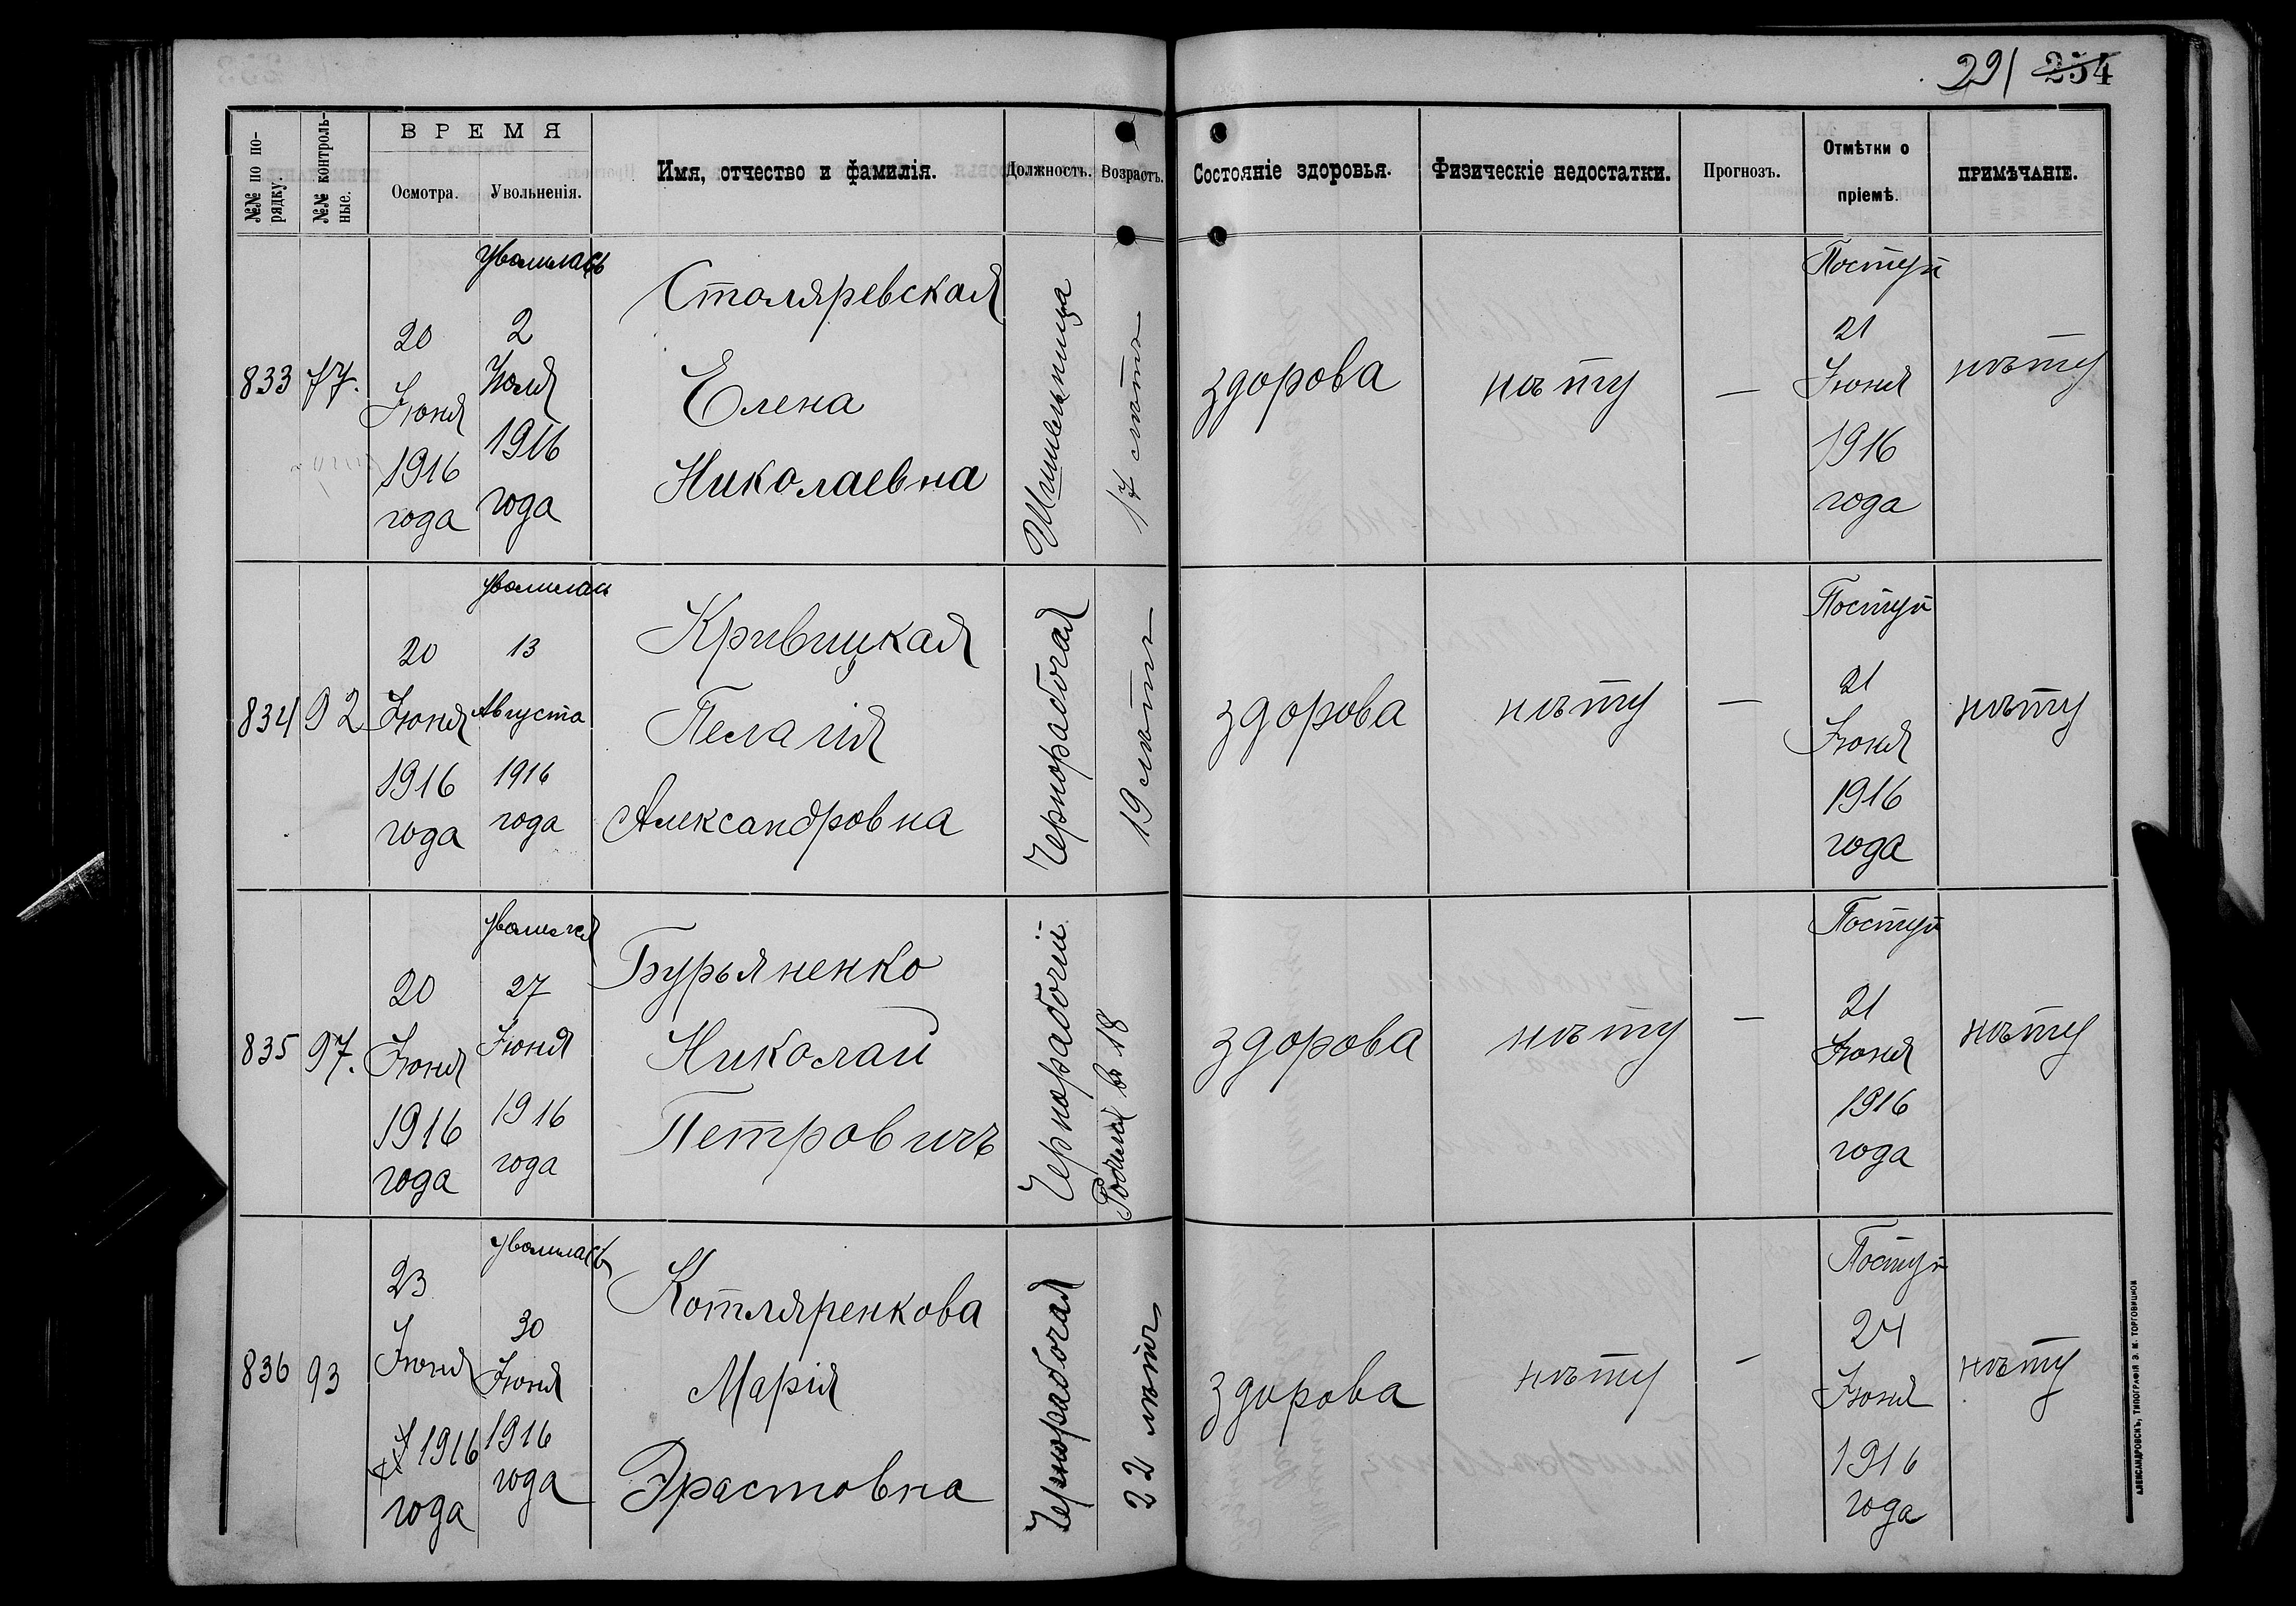 291 254
№№ по по-
рядку.
№№ контроль-
ные.
ВРЕМЯ
Осмотра.
Увольненія.
Имя, отчество и фамилія.
Должность.
Возрастъ.
Состояніе здоровья.
Физическіе недостатки.
Прогнозъ.
Отмѣтки о
пріемѣ.
ПРИМѢЧАНІЕ.
833
77.
20
Іюня
1916
года
уволилась
2
Іюля
1916
года
Столяревская
Елена
Николаевна
Шишельница
17 лѣтъ
здорова
нѣту
—
Поступ
21
Іюня
1916
года
нѣту
834
92
20
Іюня
1916
года
уволилась
13
Августа
1916
года
Кривицкая
Пелагія
Александровна
Чернорабочая
19 лѣтъ
здорова
нѣту
—
Поступ
21
Іюня
1916
года
нѣту
835
97.
20
Іюня
1916
года
уволился
27
Іюня
1916
года
Бурьяненко
Николай
Петровичъ
Чернорабочій
в 18
здорова
нѣту
—
Поступ
21
Іюня
1916
года
нѣту
836
93
23
Іюня
1916
года
уволилась
30
Іюня
1916
года
Котляренкова
Марія
Эрастовна
Чернорабочая
22 лѣтъ
здорова
нѣту
—
Поступ
24
Іюня
1916
года
нѣту
АЛЕКСАНДРОВСКЪ, ТИПОГРАФІЯ Э. М. ТОРГОВИЦКОЙ